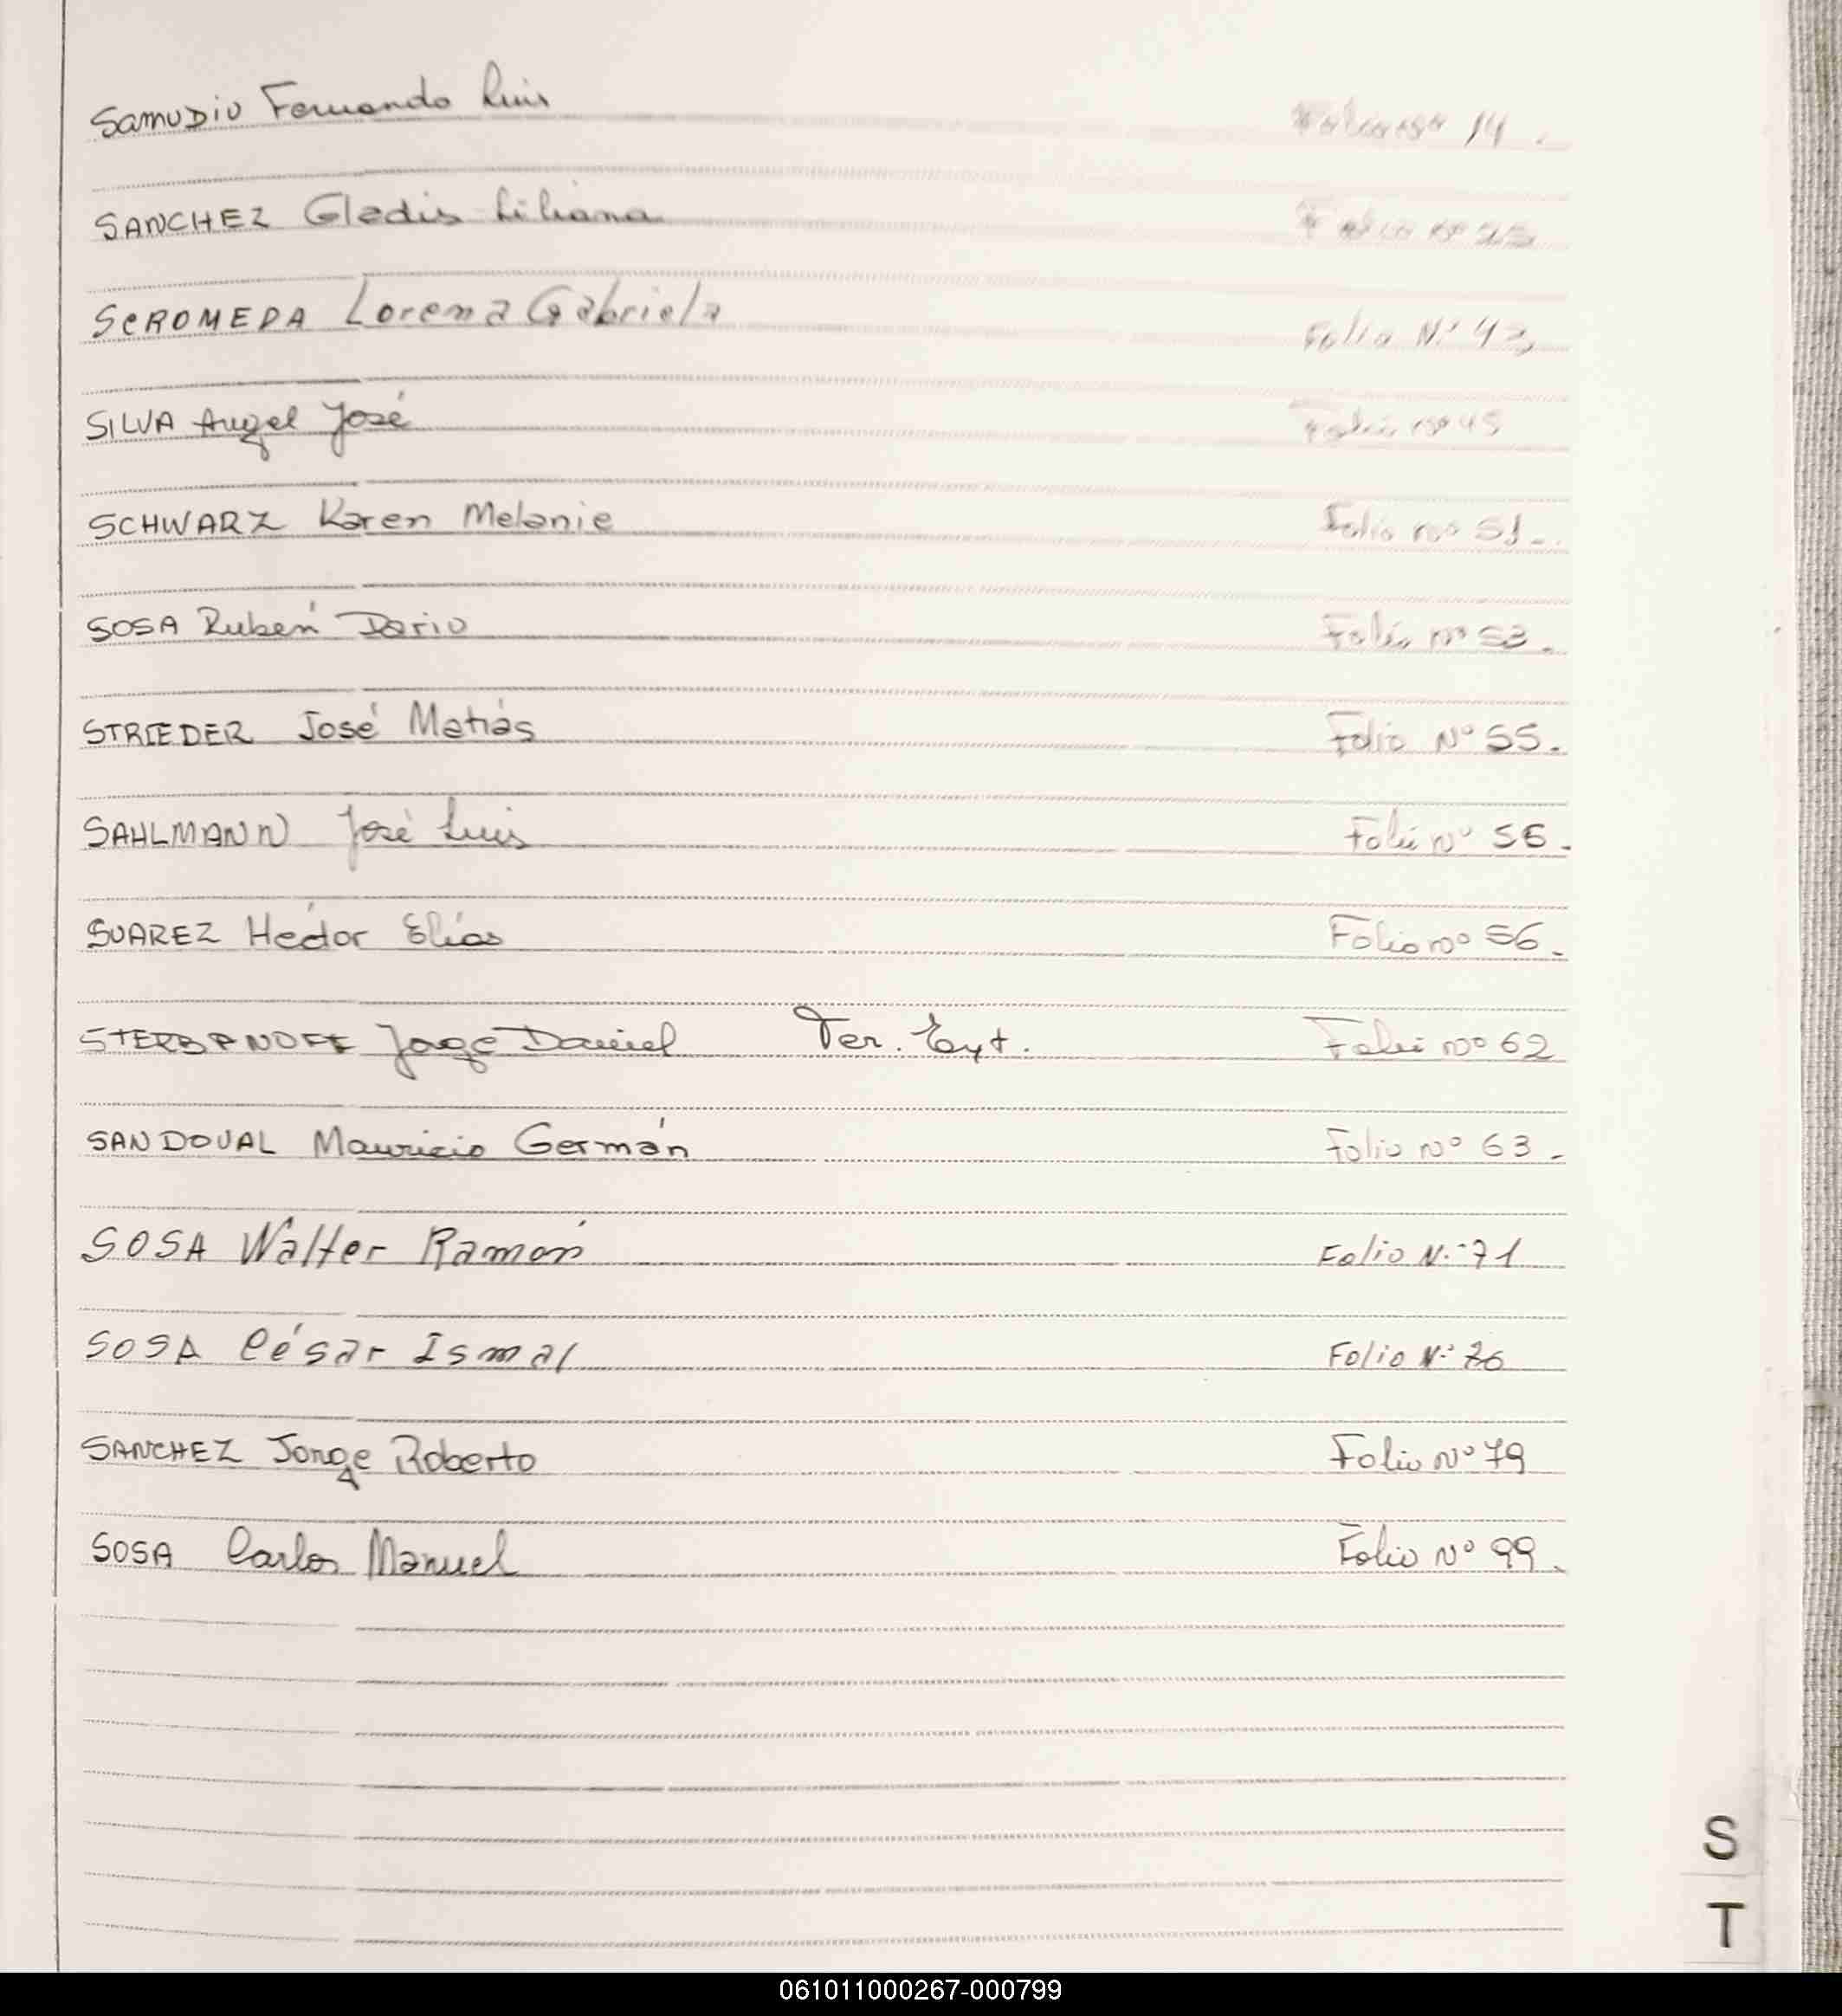 SAMUDIO Fernando Luis Folio nº 14.
SANCHEZ Gladis Liliana Folio nº
SCROMEDA Lorena Gabriela Folio Nº 43
SILVA Angel José Folio nº 45
SCHWARZ Karen Melanie Folio nº 51.-
SOSA Rubén Dario Folio nº 53.
STRIEDER José Matiás Folio Nº 55.
SAHLMANN José Luis Folio nº 56.
SUAREZ Héctor Elías Folio nº 56.
STERBANOFF Jorge Daniel Ter. Folio nº 62
SANDOVAL Mauricio Germán Folio Nº 63.-
SOSA Walter Ramón Folio Nº 71
SOSA César Ismal Folio Nº 76
SANCHEZ Jorge Roberto Folio Nº 79
SOSA Carlos Manuel Folio Nº 99.
S
T
061011000267-000799